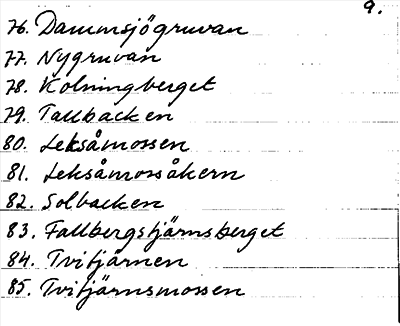 9.
76. Dammsjögruvan
77. Nygruvan
78. Kolningberget
79. Tallbacken
80. Leksåmossen
81. Leksåmossåkern
82. Solbacken
83. Fallbergstjärnsberget
84. Tvitjärnen
85. Tvitjärnsmossen